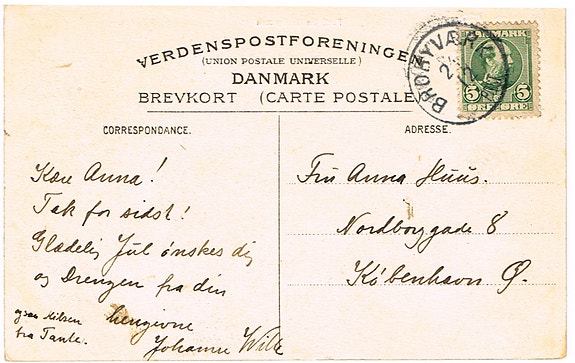 VERDENSPOSTFORENINGEN
(UNION POSTALE UNIVERSELLE)
DANMARK
BREVKORT (CARTE POSTALE)
DANMARK
5 5
BRØBYVÆRK
CORRESPONDANCE.
Kære Anna!
Tak for sidst!
Glædelig Jul ønskes dig
og Drengen fra din
hengivne
Johanne
ogsaa Hilsen
fra Tante.
ADRESSE.
Fru Anna Huus.
Nordborggade 8
København Ø.